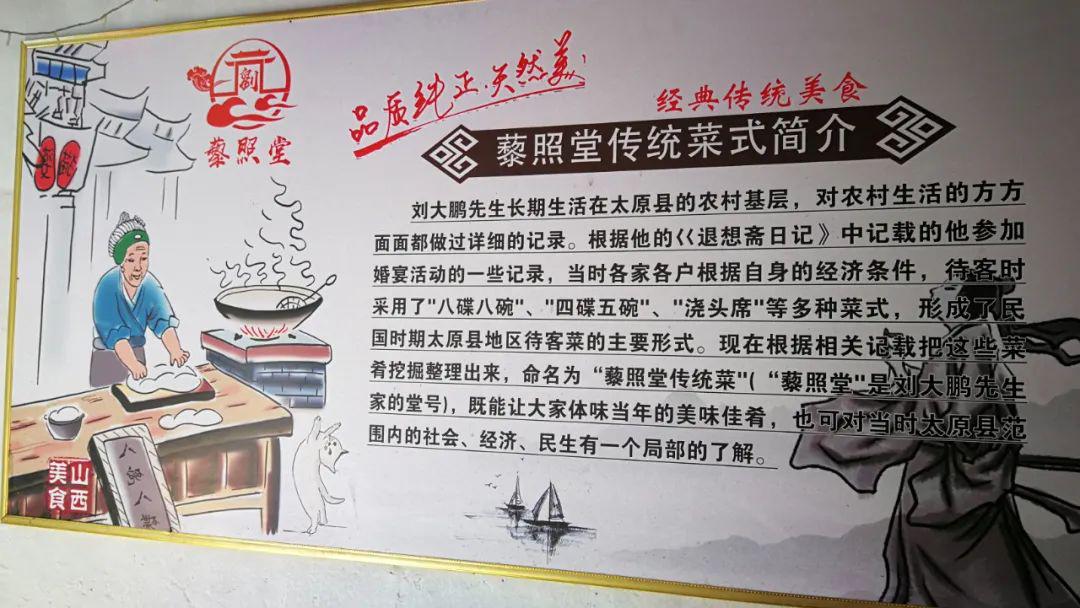 劉
藜照堂
品质纯正.天然美
经典传统美食
藜照堂传统菜式简介
刘大鹏先生长期生活在太原县的农村基层，对农村生活的方方
面面都做过详细的记录。根据他的《退想斋日记》中记载的他参加
婚宴活动的一些记录，当时各家各户根据自身的经济条件，待客时
采用了"八碟八碗"、"四碟五碗"、"浇头席"等多种菜式，形成了民
国时期太原县地区待客菜的主要形式。现在根据相关记载把这些菜
肴挖掘整理出来，命名为“藜照堂传统菜"(“藜照堂"是刘大鹏先生
家的堂号)，既能让大家体味当年的美味佳肴，也可对当时太原县范
围内的社会、经济、民生有一个局部的了解。
山西
美食